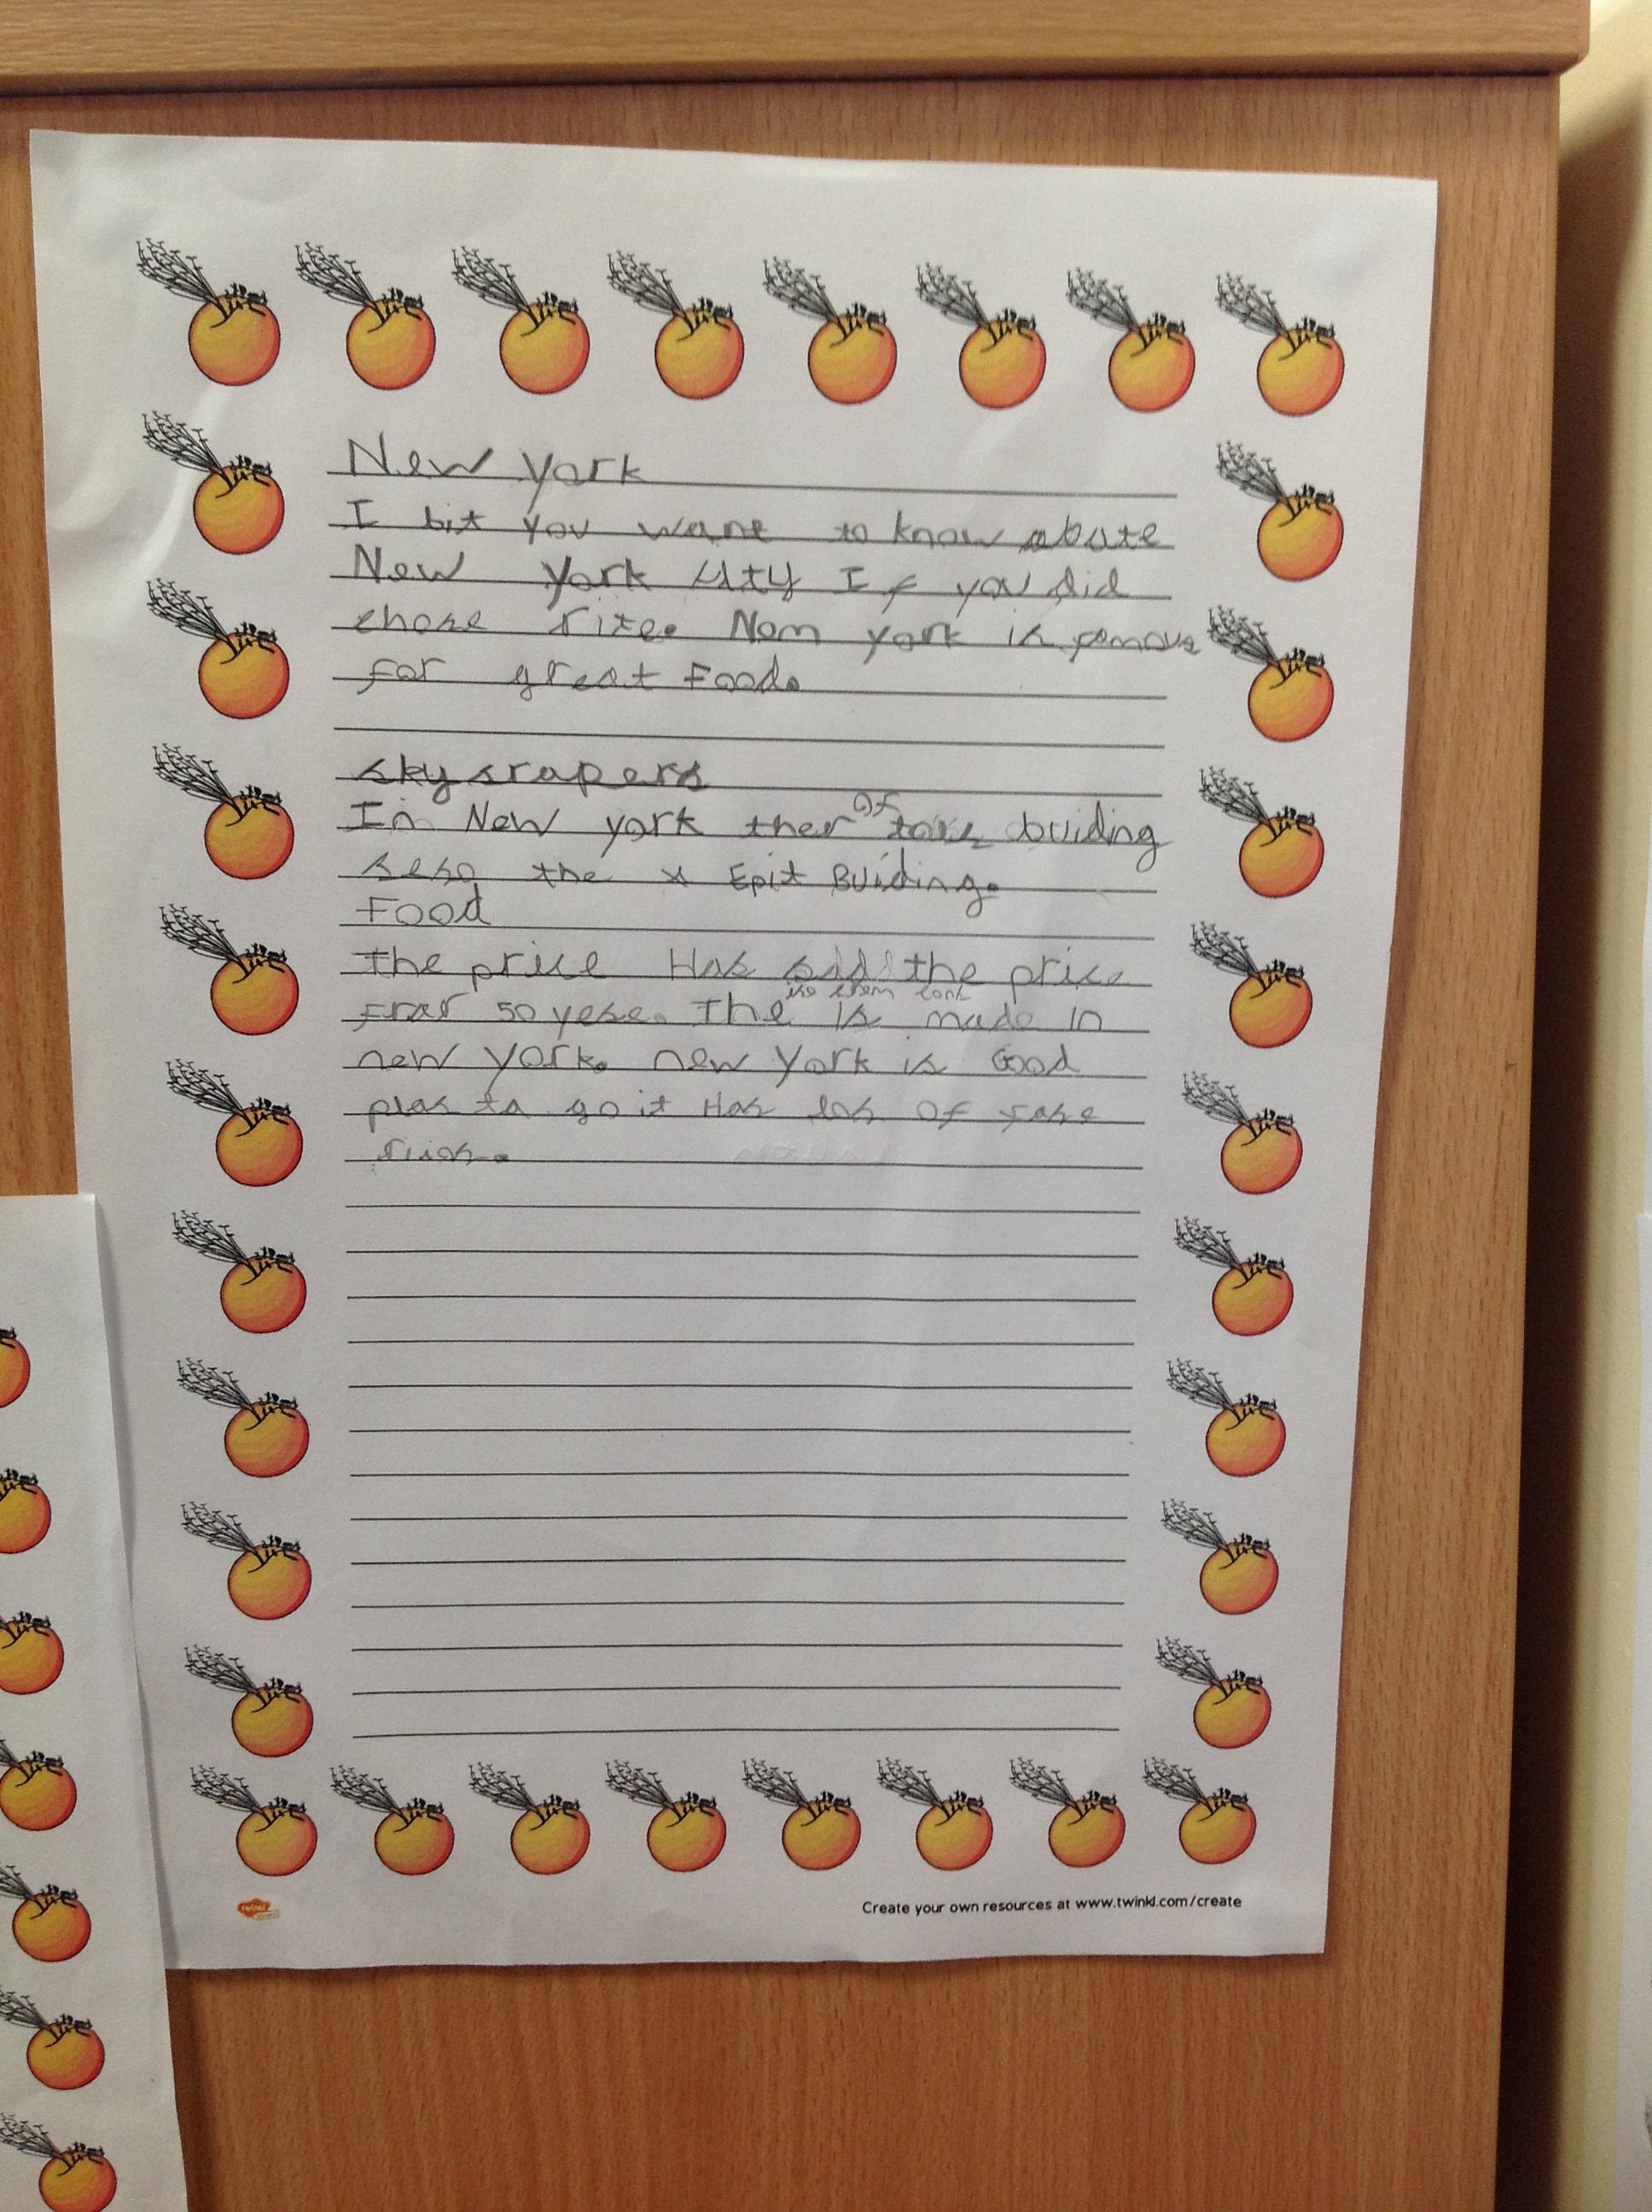 New York
I bit you want to know abute
New York City If you did
chose rite. New york is famous
for great Food.
skysrapers
In New york ther of buiding
the x Epit Buiding.
Food
the price Has the price
50 yese. The is made in
ice crem cone
new york. new york is Good
plas to go it Has los of

twinkl
Create your own resources at www.twinkl.com/create